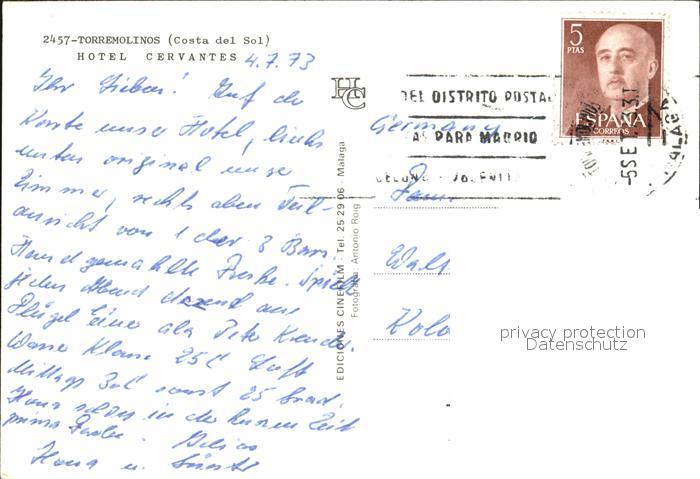 2457-TORREMOLINOS (Costa del Sol)
HOTEL CERVANTES 4.7.73
Ihr Lieben! Auf der
Karte unser Hotel, links
unten original unser
Zimmer, rechts oben Teil-
ansicht von 1 der 3 Bars.
Hand gemahlte
jeden Abend dezent am
Flügel eine ala Peter
Wasser Klasse 25° Luft
Mittags 30° sonst 25 Grad.
Haus schon in der kurzen Zeit
prima Farbe.
Hans u.
HC
EDICIONES CINEFILM - Tel. 25 29 06 - Málaga
Fotografía: Antonio Roig
DEL DISTRITO POSTAL
PARA MADRID
5 SET
5
PTAS
ESPAÑA
CORREOS
Germany
Fam.
Walt
Kolo
privacy protection
Datenschutz